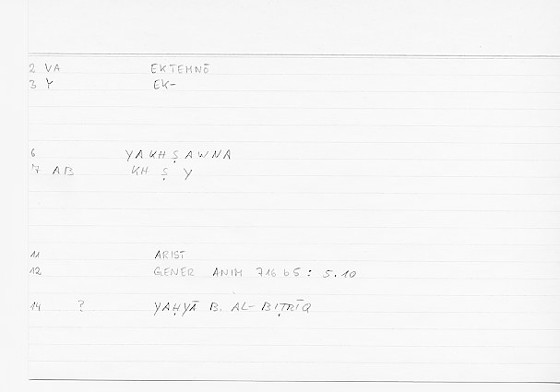 2 VA EKTEMNŌ
3 Y EK-
6 YAKHṢAWNA
7 AB KH Ṣ Y
11 ARIST
12 GENER ANIM 716 b5 : 5.10
14 ? YAḤYĀ B. AL-BIṬRĪQ